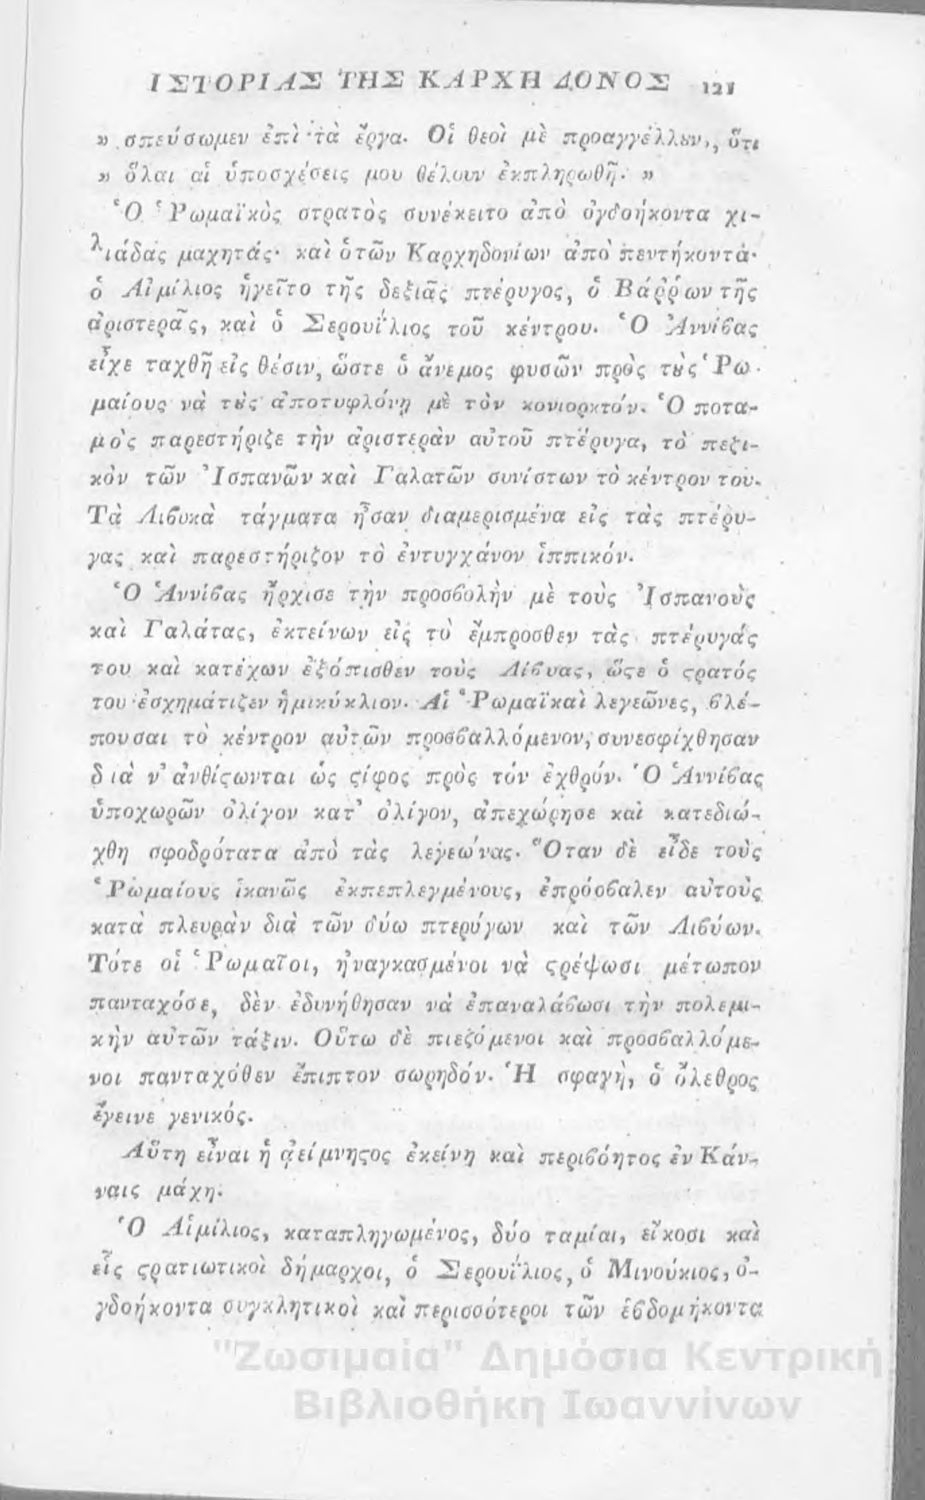 ΙΣΤΟΡΙΑΣ ΤΗΣ ΚΑΡΧΗΔΟΝΟΣ 121
» σπεύσωμεν ἐπὶ τὰ ἔργα. Οἱ θεοὶ μὲ προαγγέλλȣν, ὅτι
» ὅλαι αἱ ὑποσχέσεις μου θέλουν ἐκπληρωθῆ. »
Ὁ Ῥωμαϊκὸς στρατὸς συνέκειτο ἀπὸ ὀγδοήκοντα χι-
λιάδας μαχητάς· καὶ ὁ τῶν Καρχηδονίων ἀπὸ πεντήκοντα·
ὁ Αἰμίλιος ἡγεῖτο τῆς δεξιᾶς πτέρυγος, ὁ Βάῤῥων τῆς
ἀριστερᾶς, καὶ ὁ Σερουΐλιος τοῦ κέντρου. Ὁ Ἀννίβας
εἶχε ταχθῆ εἰς θέσιν, ὥστε ὁ ἄνεμος φυσῶν πρὸς τȣς Ῥω-
μαίους νὰ τȣς ἀποτυφλόνῃ μὲ τὸν κονιορκτόν. Ὁ ποτα-
μὸς παρεστήριζε τὴν ἀριστερὰν αὐτοῦ πτέρυγα, τὸ πεζι-
κὸν τῶν Ἰσπανῶν καὶ Γαλατῶν συνίστων τὸ κέντρον του.
Τὰ Λιβυκὰ τάγματα ἦσαν διαμερισμένα εἰς τὰς πτέρυ-
γας καὶ παρεστήριζον τὸ ἐντυγχάνον ἱππικόν.
Ὁ Ἀννίβας ἤρχισε τὴν προσβολὴν μὲ τοὺς Ἰσπανοὺς
καὶ Γαλάτας, ἐκτείνων εἰς τὸ ἔμπροσθεν τὰς πτέρυγάς
του καὶ κατέχων ἐξόπισθεν τοὺς Λίβυας, ὥςε ὁ ςρατός
του ἐσχημάτιζεν ἡμικύκλιον. Αἱ Ῥωμαϊκαὶ λεγεῶνες, βλέ-
πουσαι τὸ κέντρον αὐτῶν προσβαλλόμενον, συνεσφίχθησαν
διὰ ν' ἀνθίςωνται ὡς ςίφος πρὸς τόν ἐχθρόν. Ὁ Ἀννίβας
ὑποχωρῶν ὀλίγον κατ' ὀλίγον, ἀπεχώρησε καὶ κατεδιώ-
χθη σφοδρότατα ἀπὸ τὰς λεγεώνας. Ὅταν δὲ εἶδε τοὺς
Ῥωμαίους ἱκανῶς ἐκπεπλεγμένους, ἐπρόσβαλεν αὐτοὺς
κατὰ πλευρὰν διὰ τῶν δύω πτερύγων καὶ τῶν Λιβύων.
Τότε οἱ Ῥωμαῖοι, ἠναγκασμένοι νὰ ςρέψωσι μέτωπον
πανταχόσε, δὲν ἐδυνήθησαν νὰ ἐπαναλάβωσι τὴν πολεμι-
κὴν αὐτῶν τάξιν. Οὕτω δὲ πιεζόμενοι καὶ προσβαλλόμε-
νοι πανταχόθεν ἔπιπτον σωρηδόν. Ἡ σφαγὴ, ὁ ὄλεθρος
ἔγεινε γενικός.
Αὕτη εἶναι ἡ ἀείμνηςος ἐκείνη καὶ περιβόητος ἐν Κάν-
ναις μάχη.
Ὁ Αἰμίλιος, καταπληγωμένος, δύο ταμίαι, εἴκοσι καὶ
εἷς ςρατιωτικοὶ δήμαρχοι, ὁ Σερουΐλιος, ὁ Μινούκιος, ὀ-
γδοήκοντα συγκλητικοὶ καὶ περισσότεροι τῶν ἑβδομήκοντα
"Ζωσιμαία" Δημόσια Κεντρική
Βιβλιοθήκη Ιωαννίνων